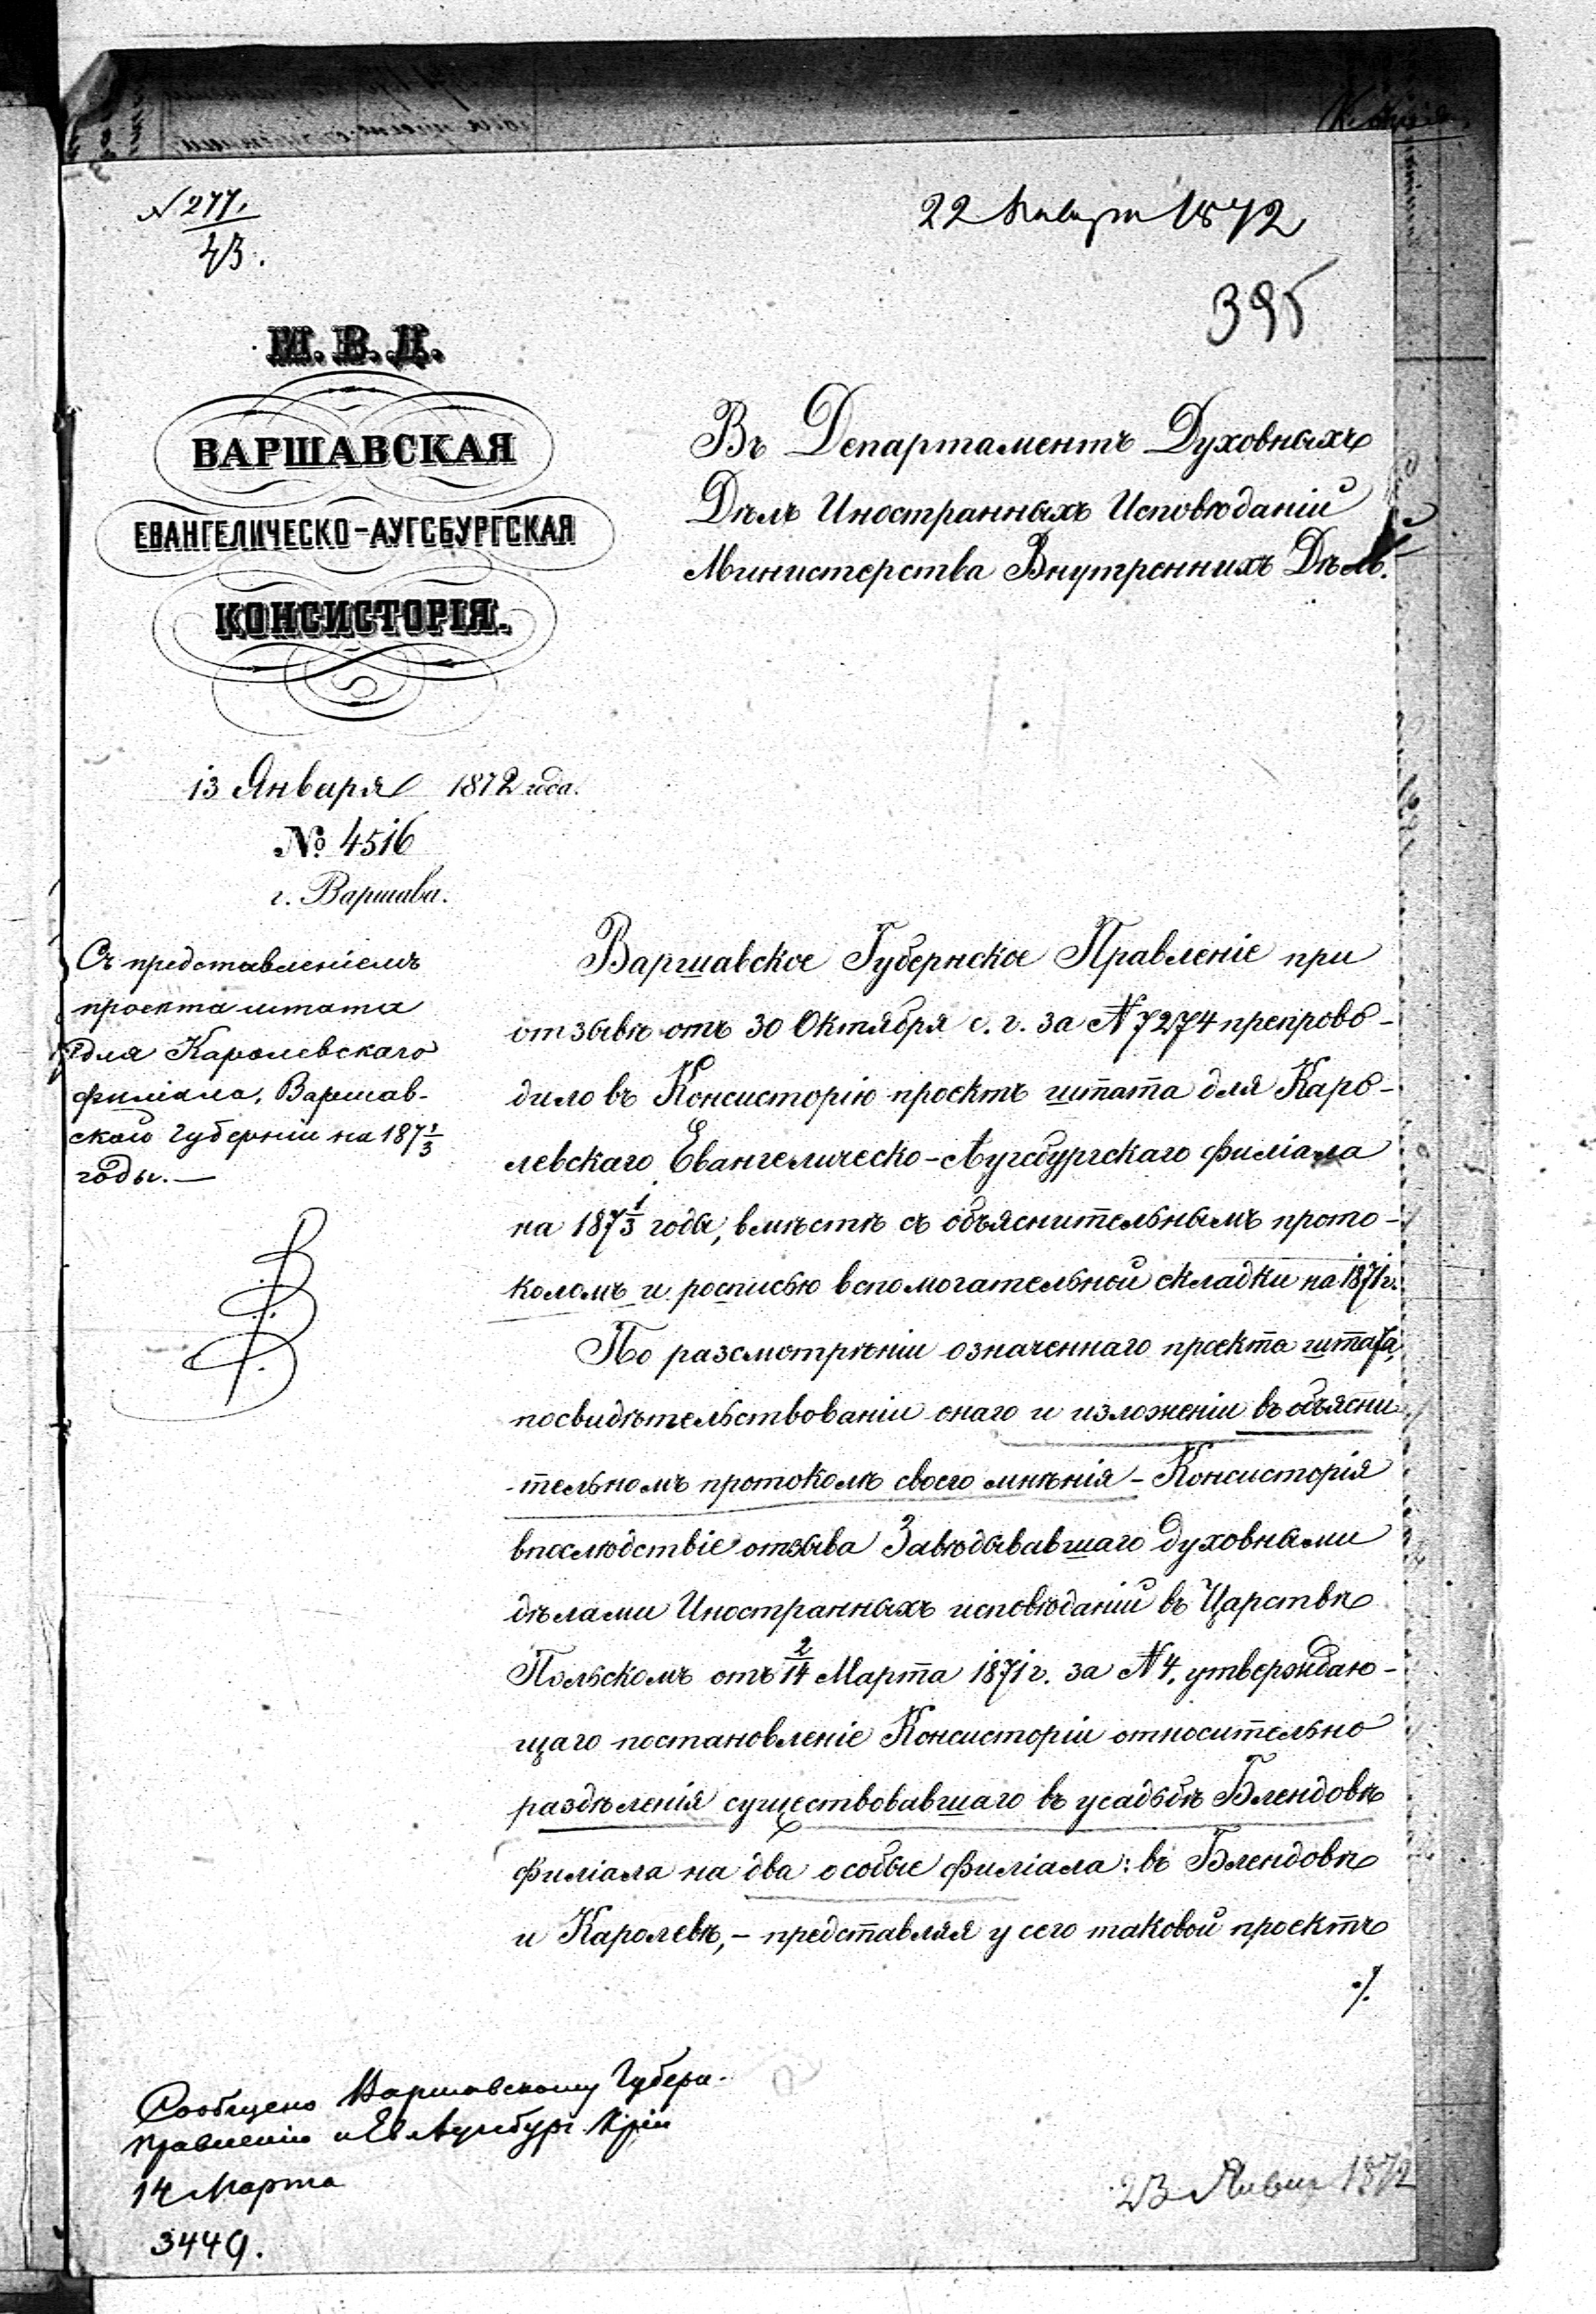 № 277.
43.
22 Января 1872
395
М. В. Д.
ВАРШАВСКАЯ
ЕВАНГЕЛИЧЕСКО-АУГСБУРГСКАЯ
КОНСИСТОРІЯ.
13 Января 1872 года.
№ 4516
г. Варшава.
Въ Департаментъ Духовныхъ
Дѣлъ Иностранныхъ Исповѣданій
Министерства Внутреннихъ Дѣлъ.
Съ представленіемъ
проекта штата
для Каролевскаго
филіала, Варшав-
ской Губерніи на 187 1/3
годы.—
Варшавское Губернское Правленіе при
отзывѣ отъ 30 Октября с. г. за № 7274 препрово-
дило въ Консисторію проектъ штата для Каро-
левскаго Евангелическо-Аугсбургскаго филіала
на 187 1/3 годы, вмѣстѣ съ объяснительнымъ прото-
коломъ и росписью вспомогательной складки на 1871 г.
По разсмотрѣніи означеннаго проекта штата,
посвидѣтельствованіи онаго и изложеніи въ объясни
-тельномъ протоколѣ своего мнѣнія - Консисторія
впослѣдствіе отзыва Завѣдывавшаго духовными
дѣлами Иностранныхъ исповѣданій въ Царствѣ
Польскомъ отъ 2/14 Марта 1871 г. за № 4, утверждаю-
щаго постановленіе Консисторіи относительно
раздѣленія существовавшаго въ усадьбѣ Блендовѣ
филіала на два особые филіала: въ Блендовѣ
и Каролевѣ, - представляя у сего таковой проектъ
./.
Сообщено Варшавскому Губерн.
Правленію и Ев Аугсбург. К ріи
14 Марта
3449.
23 Январ 1872